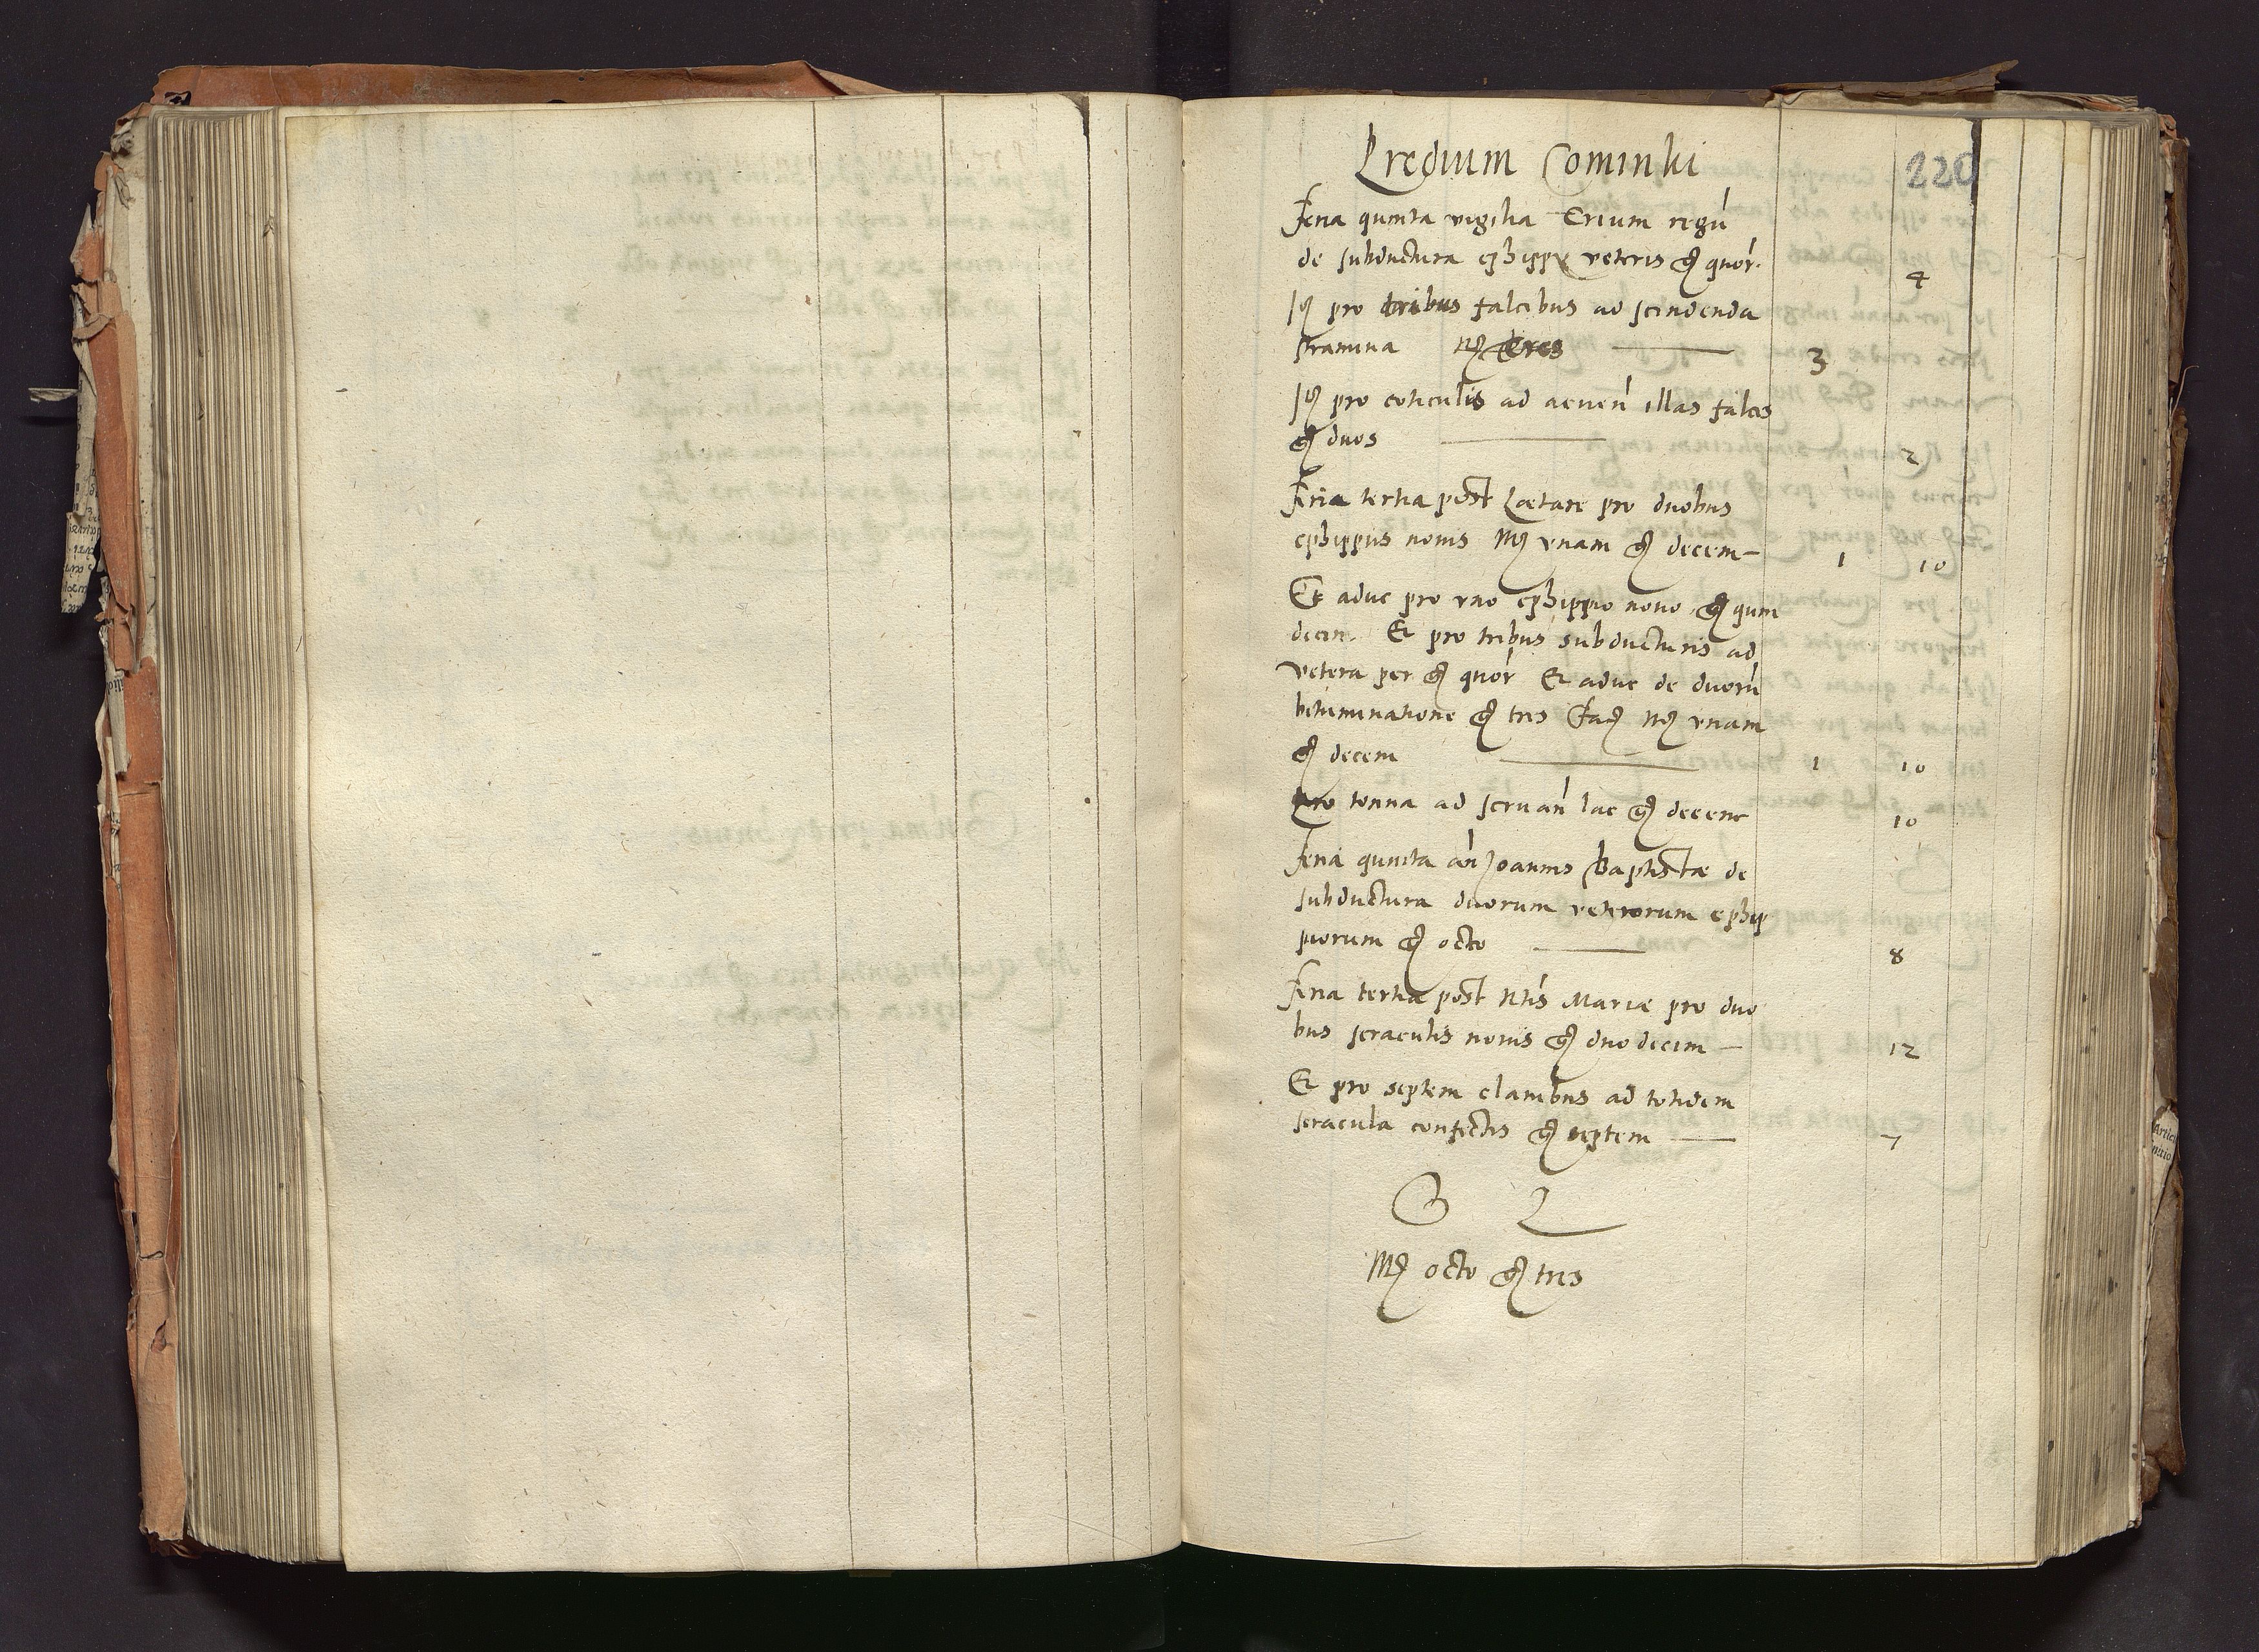 Predium Cominki
220
Feria quinta vigilia Trium regū
de subductura ephippy veteris gͦ quor. 4
Itͫ pro tribus falcibus ad scindenda
stramina Mͦ tres 3
Itͫ pro coticulis ad acuen illas falces
gͦ duos 2
Feria tertia post Laetare pro duobus
ephippiis novis Mͦ vnam gͦ decem 1 10
Et aduc pro vno ephippio nouo gͦ quin
decim. Et pro tribus subducturis ad
vetera per gͦ quor Et aduc de duorū
bituminatione gͦ tres facͭ Mͦ vnam
gͦ decem 1 10
pro tonna ad seruan lac gͦ decem 10
Feria quinta an Joannis Baptistae de
subductura duorum veterorum ephip
piorum gͦ octo 8
Feria tertia post Ntis Mariae pro duo
bus seraculis nouis gͦ duodecim 12
Et pro septem clauibus ad totidem
seracula confectis gͦ septem 7
Mͦ octo gͦ tres